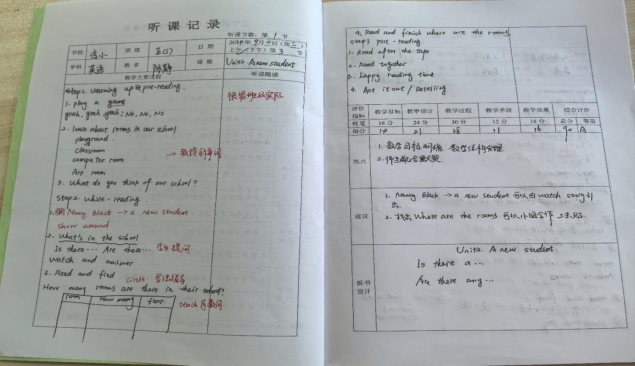 听课记录
听课节数：第 1 节
学校
班级
五(5)
日期
学科
英语
教者
陈静
课题
Unit2 A new student
教学主要过程
听课随感
Step1. Warming up & pre-reading.
1. play a game
yeah, yeah, yeah; No, No, No
2. learn about rooms in our school
playground
classroom
computer room
Art room
→ 教授新单词
3. What do you think of our school?
Step2 while-reading
1. Nancy Black → a new student
show around
2. What's in the school
Is there... Are there...
学生提问
Watch and answer
3. Read and find
circle
How many rooms are there in their school?
room
How many
floor
teach 序数词
4. Read and finish where are the rooms
Step3 post-reading
1. Read after the tape
2. Read together
3. happy reading time
4. Act it out / retelling
评价指标
教学目标
教学设计
教学过程
教学手段
教学效果
综合评价
权重
16 分
24 分
30 分
12 分
18 分
总分
等级
得分
14
21
28
11
16
90
A
优点
1. 教学目标明确
建议
1. Nancy Black → a new student 可以由 watch story 引出.
2. 找出 Where are the rooms 可以小组合作
板书设计
Unit2. A new student
Is there a...
Are there any...